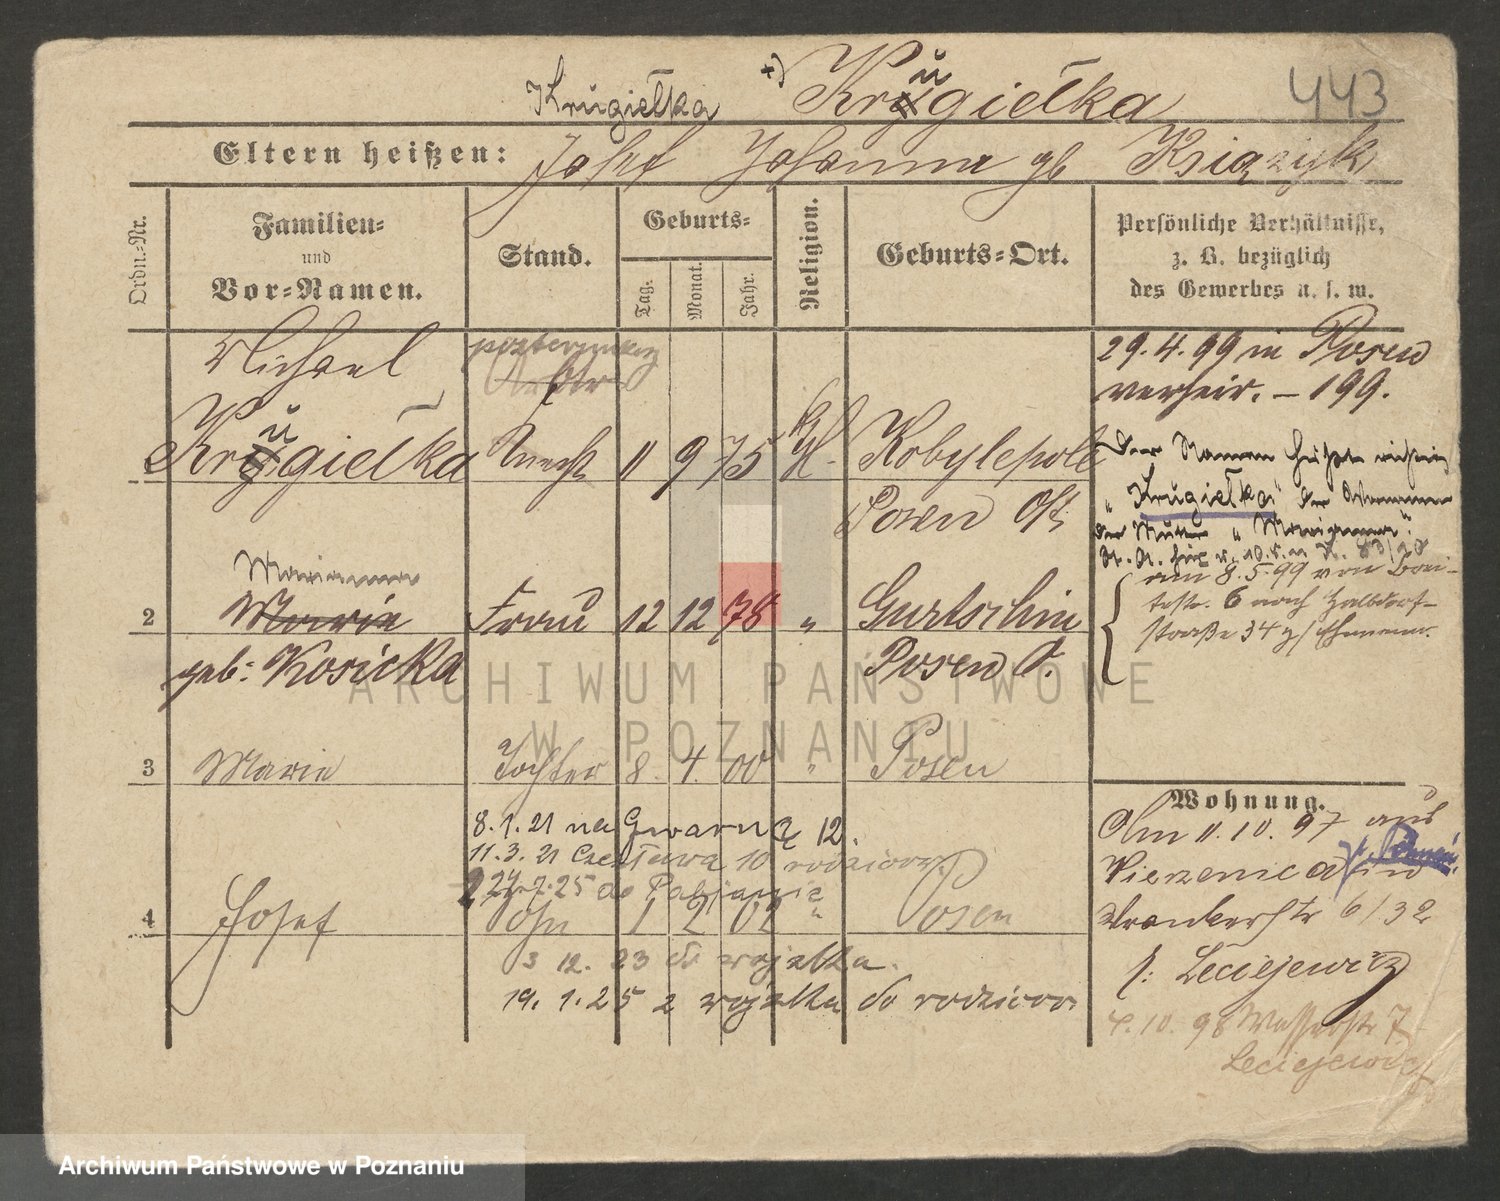 Krugiełka +) Krugiełka 443
Eltern heißen: Josef Johanna gb Książyk
Ordn.-Nr.
Familien-
und
Vor-Namen.
Stand.
Geburts-
Tag.
Monat.
Jahr.
Religion.
Geburts-Ort.
Persönliche Verhältnisse,
z. B. bezüglich
des Gewerbes u. s. w.
Michael
Krugiełka Knecht 11 9 75 Kth. Kobylepole
Posen Ost
29.4.99 in Posen
verheir. – 199.
Der Namen richtig
"Krugiełka" der Vornamen
der Mutter "Marianna".
am 8.5.99 von
6 nach Halbdorf-
straße 34
Marianna
2 Marie Frau 12 12 78 " Gurtschin
geb: Kosicka Posen O.
3 Marie Tochter 8. 4. 00 " Posen
8.1.21 na Gwarną 12.
11.3.21 10 rodziców
27.7.25 do Pabjanic
4 Josef Sohn 1 2 02 " Posen
3 12. 23 do wojska.
19. 1. 25 z wojska do rodziców
Wohnung.
Am 11.10.97 aus
Wierzenica in
6/32
b: Leciejewicz
4.10.98 Wasserstr 7
Leciejewicz
ARCHIWUM PAŃSTWOWE
W POZNANIU
Archiwum Państwowe w Poznaniu